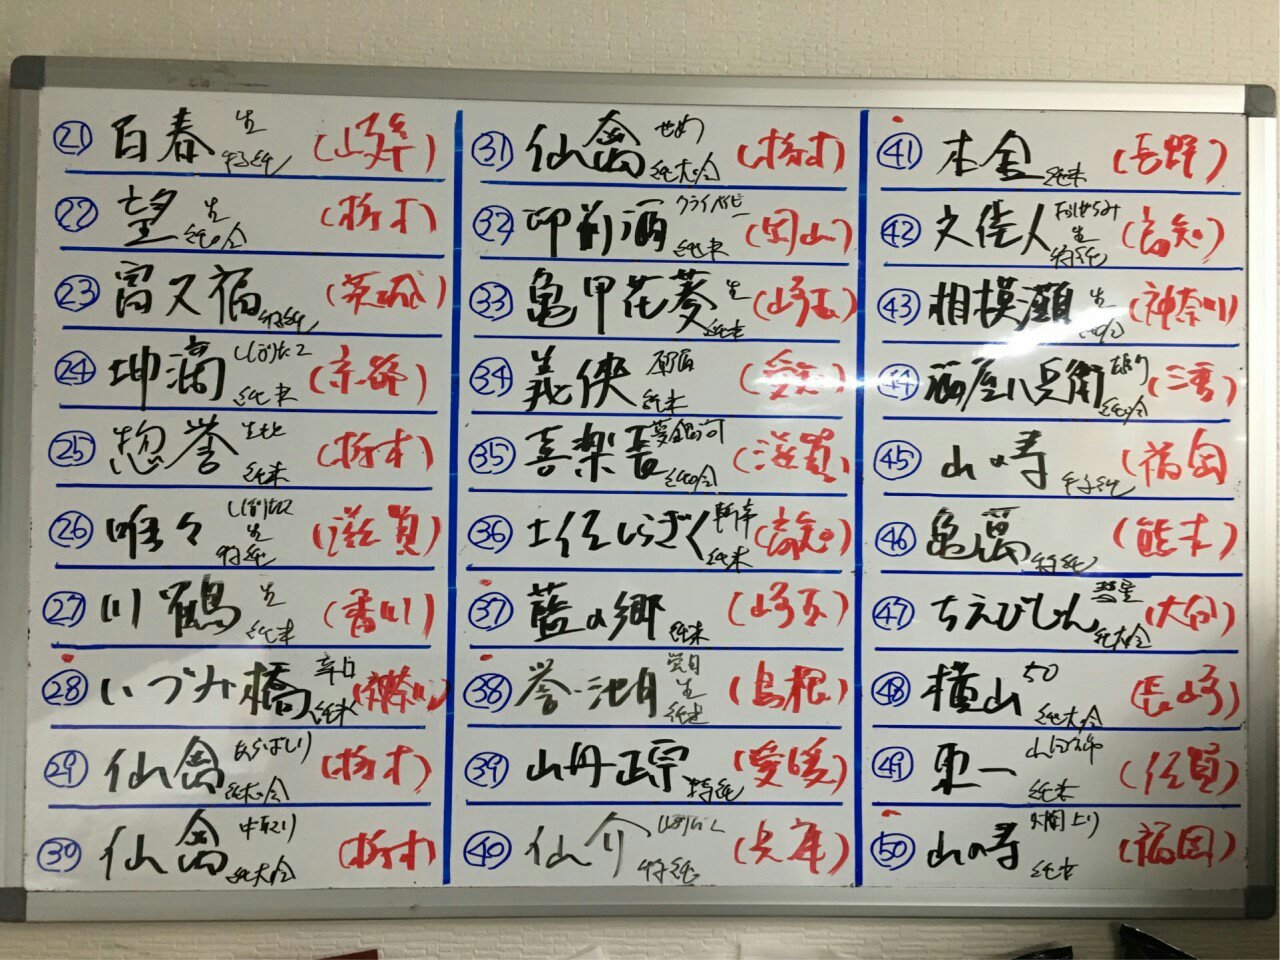 ㉑ 百春 生 特純 (岐阜)
㉒ 望 生 純吟 (栃木)
㉓ 富久福 特純 (茨城)
㉔ 坤滴 しぼりたて 純米 (京都)
㉕ 惣誉 生酛 純米 (栃木)
㉖ 唯々 しぼりたて 生 特純 (滋賀)
㉗ 川鶴 生 純米 (香川)
㉘ いづみ橋 辛口 純米 (神奈川)
㉙ 仙禽 あらばしり 純大吟 (栃木)
㉚ 仙禽 中取り 純大吟 (栃木)
㉛ 仙禽 せめ 純大吟 (栃木)
㉜ 御前酒 純米 (岡山)
㉝ 亀甲花菱 生 純米 (埼玉)
㉞ 義侠 原酒 純米 (愛知)
㉟ 喜楽長 夢銀河 純吟 (滋賀)
㊱ 土佐しらぎく 斬辛 純米 (高知)
㊲ 藍の郷 純米 (埼玉)
㊳ 誉池月 生 純米 (島根)
㊴ 山丹正宗 特純 (愛媛)
㊵ 仙介 しぼりたて 特純 (兵庫)
㊶ 本金 純米 (長野)
㊷ 文佳人 生 特純 (高知)
㊸ 相模灘 生 純吟 (神奈川)
㊹ 酒屋八兵衛 純吟 (三重)
㊺ 山の寿 特純 (福岡)
㊻ 亀萬 特純 (熊本)
㊼ ちえびじん 彗星 純大吟 (大分)
㊽ 横山 50 純大吟 (長崎)
㊾ 東一 山田錦 純米 (佐賀)
㊿ 山の寿 燗上り 純米 (福岡)